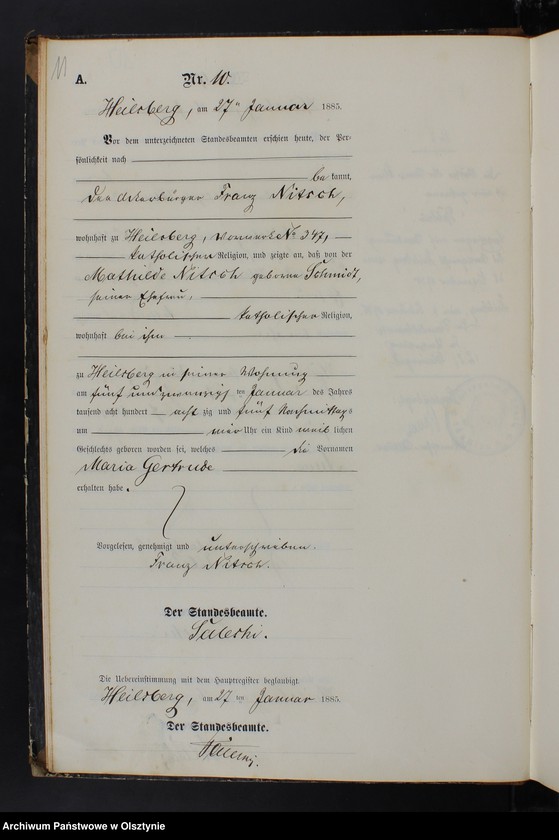 11
A.
Nr. 10.
Heilsberg, am 27ten Januar 1885.
Vor dem unterzeichneten Standesbeamten erschien heute, der Per-
sönlichkeit nach
bekannt,
der Ackerbürger Franz Nitsch,
wohnhaft zu Heilsberg, Vorwerk No 347,
katholischer Religion, und zeigte an, daß von der
Mathilde Nitsch geborne Schmidt,
seiner Ehefrau,
katholischer Religion,
wohnhaft bei ihm
zu Heilsberg in seiner Wohnung
am fünf und zwanzigsten Januar des Jahres
tausend acht hundert achtzig und fünf Nachmittags
um vier Uhr ein Kind weiblichen
Geschlechts geboren worden sei, welches die Vornamen
Maria Gertrude
erhalten habe.
Vorgelesen, genehmigt und unterschrieben.
Franz Nitsch.
Der Standesbeamte.
Die Uebereinstimmung mit dem Hauptregister beglaubigt.
Heilsberg, am 27ten Januar 1885.
Der Standesbeamte.
Archiwum Państwowe w Olsztynie